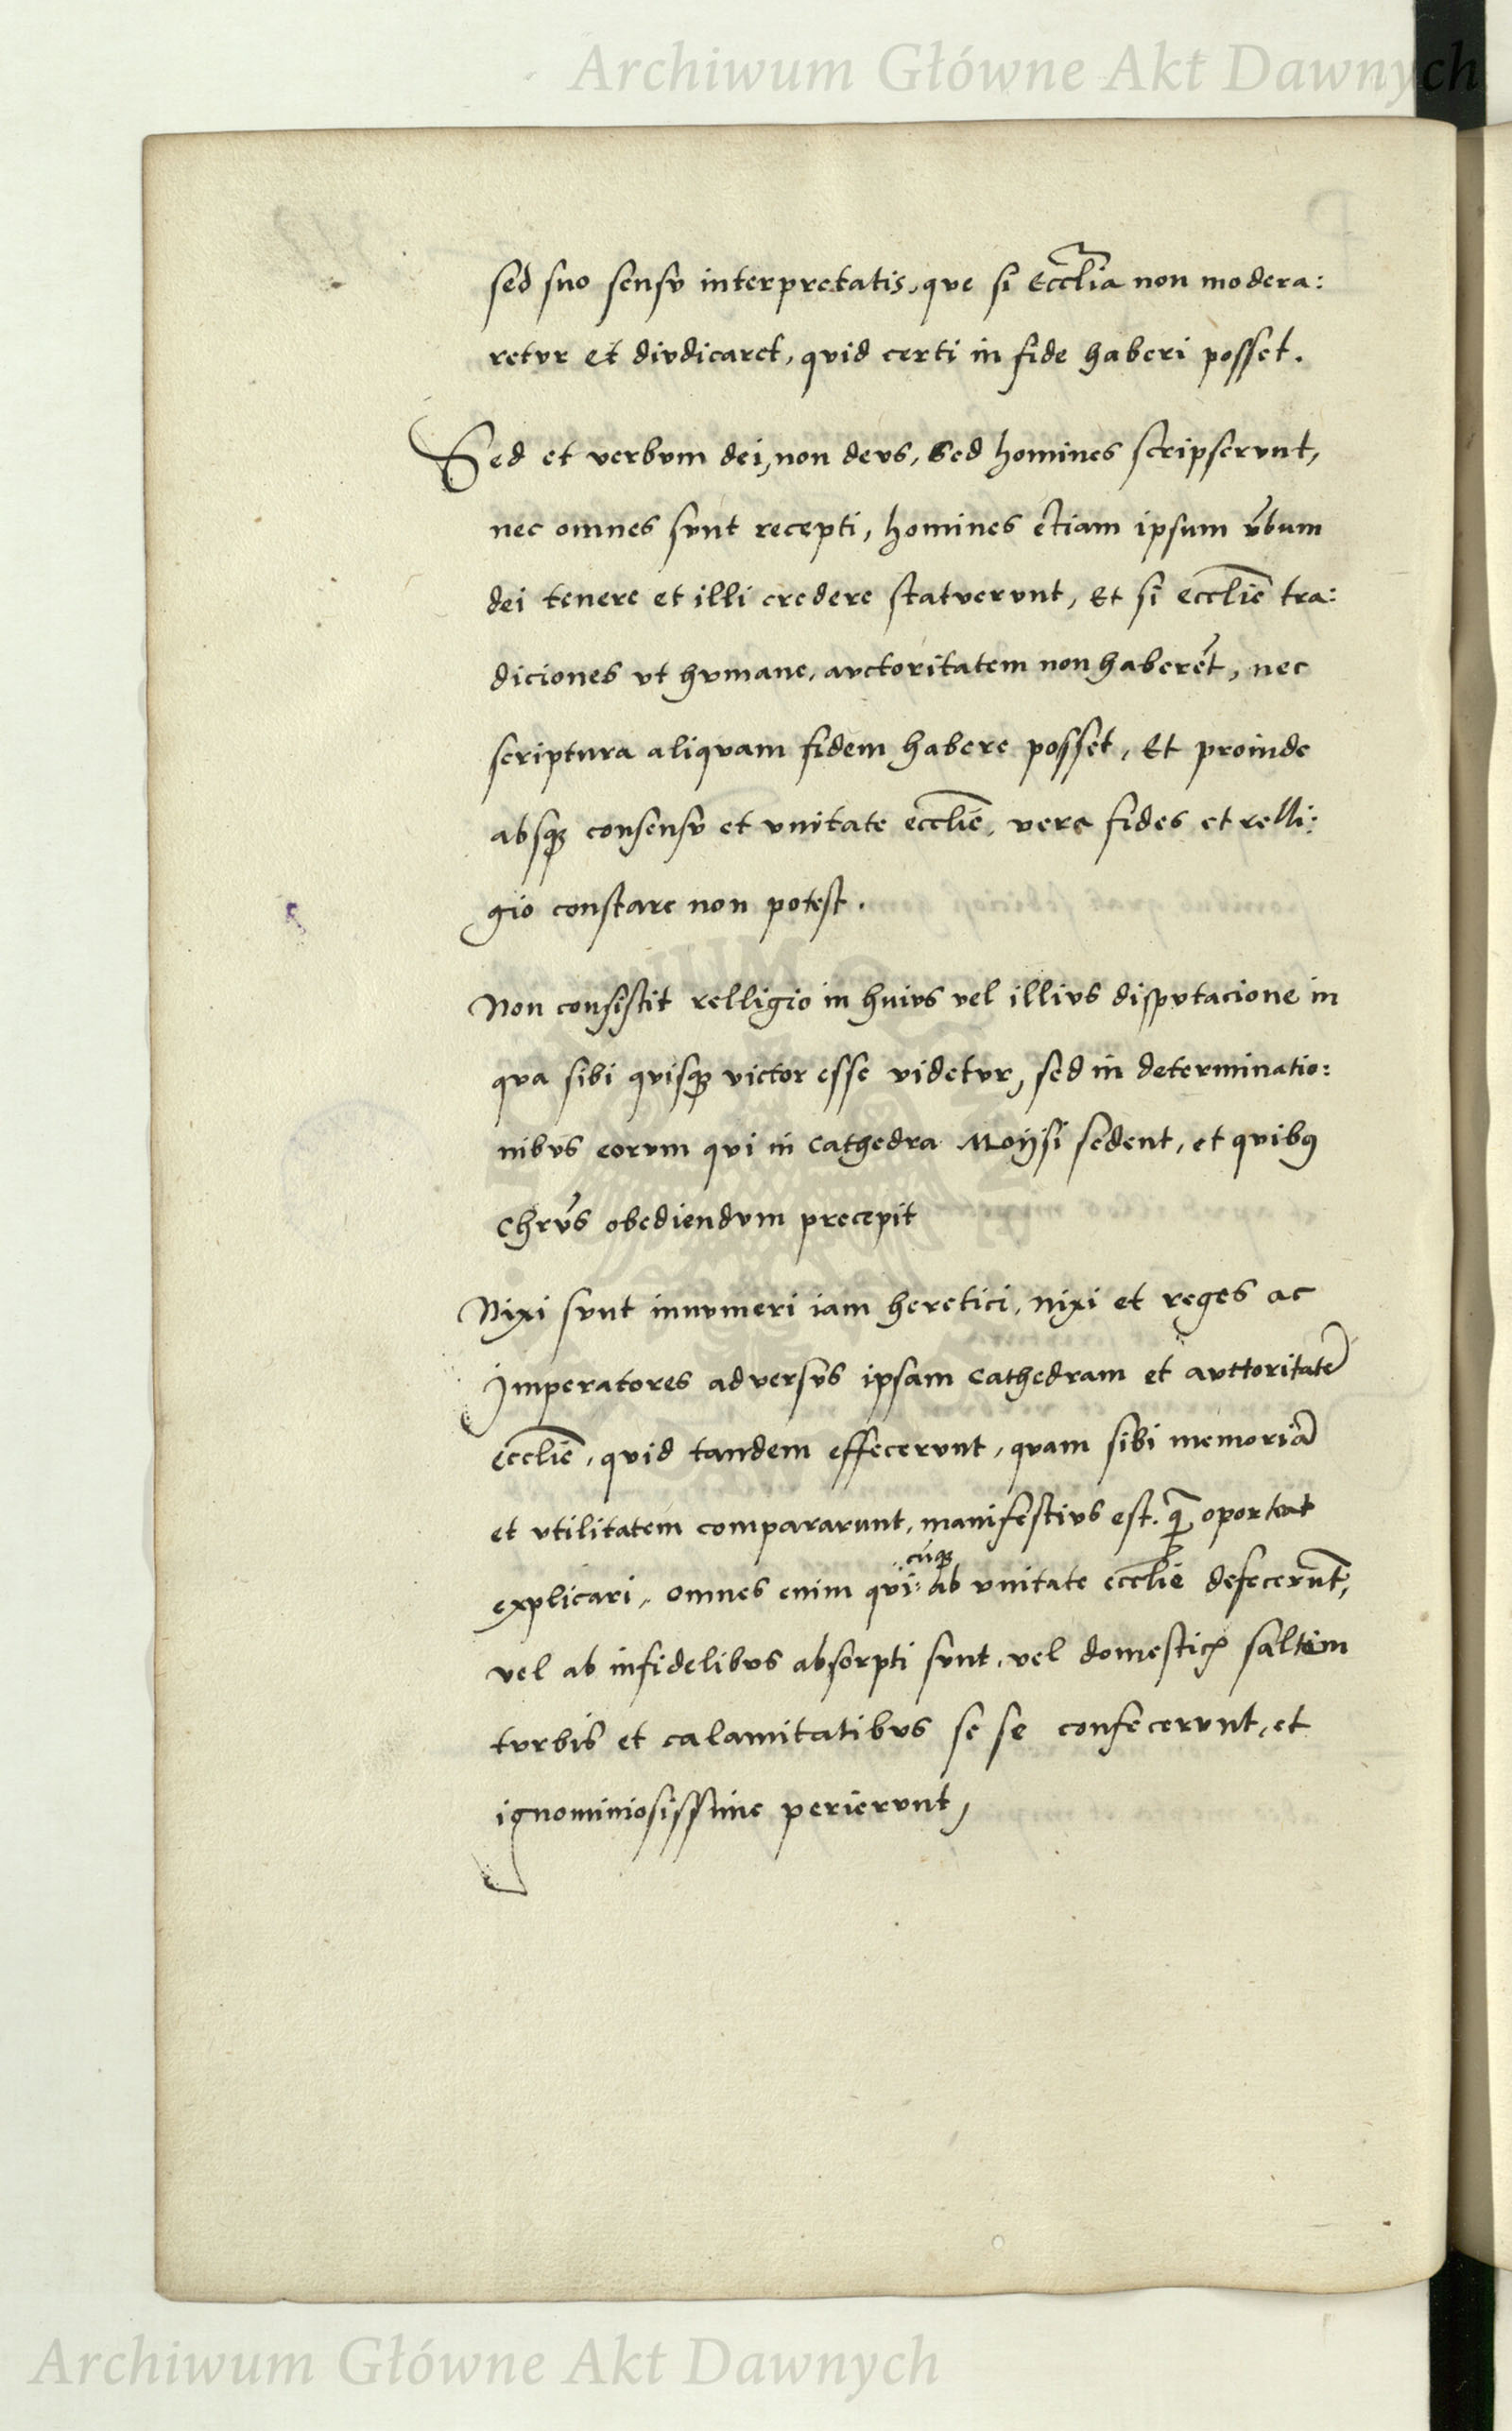 Archiwum Główne Akt Dawnych
sed suo sensv interpretatis, qve si Ecclia non modera:
retvr et divdicaret, qvid certi in fide haberi posset.
Sed et verbvm dei, non devs, Sed homines scripservnt,
nec omnes svnt recepti, homines etiam ipsum v̄bum
dei tenere et illi credere statvervnt, Et si ecclie tra:
diciones vt hvmane, avctoritatem non haberēt, nec
scriptura aliqvam fidem habere posset, Et proinde
absqȝ consensv et vnitate ecclie, vera fides et relli:
gio constare non potest.
Non consistit relligio in huivs vel illivs dispvtacione in
qva sibi qvisqȝ victor esse videtvr, sed in determinatio:
nibvs eorvm qvi in Cathedra Moÿsi sedent, et qvibꝰ
Chrvs̄ obediendvm precepit
Nixi svnt innvmeri iam heretici, nixi et reges ac
Imperatores adversvs ipsam Cathedram et avttoritatē
ecclie, qvid tandem effecervnt, qvam sibi memoriā
et vtilitatem compararunt, manifestivs est. qꝫ̄ oporteat
cūqȝ
explicari, omnes enim qvi: ab vnitate ecclie defecerv̄t,
vel ab infidelibvs absorpti svnt, vel domesticꝭ saltem
tvrbis et calamitatibvs se se confecervnt, et
ignominiosissime periervnt,
Archiwum Główne Akt Dawnych